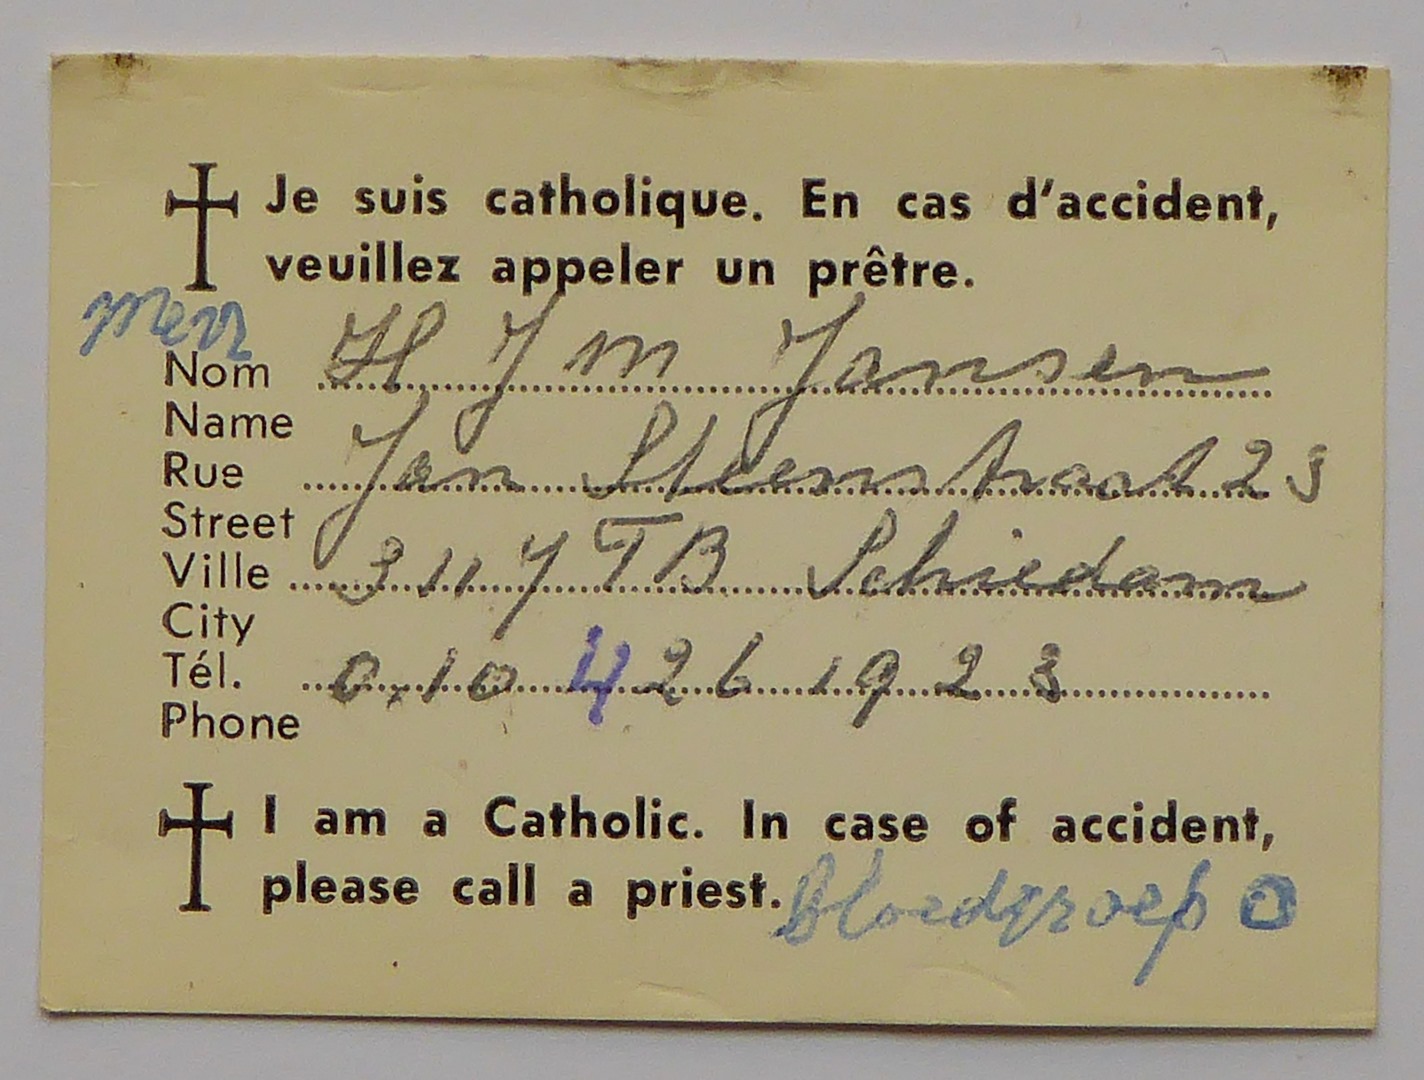 Je suis catholique. En cas d'accident,
veuillez appeler un prêtre.
Nom H J M Jansen
Name
Rue Jan Steenstraat 23
Street
Ville 3117 TB Schiedam
City
Tél. 010 426 1923
Phone
I am a Catholic. In case of accident,
please call a priest. Bloedgroep O